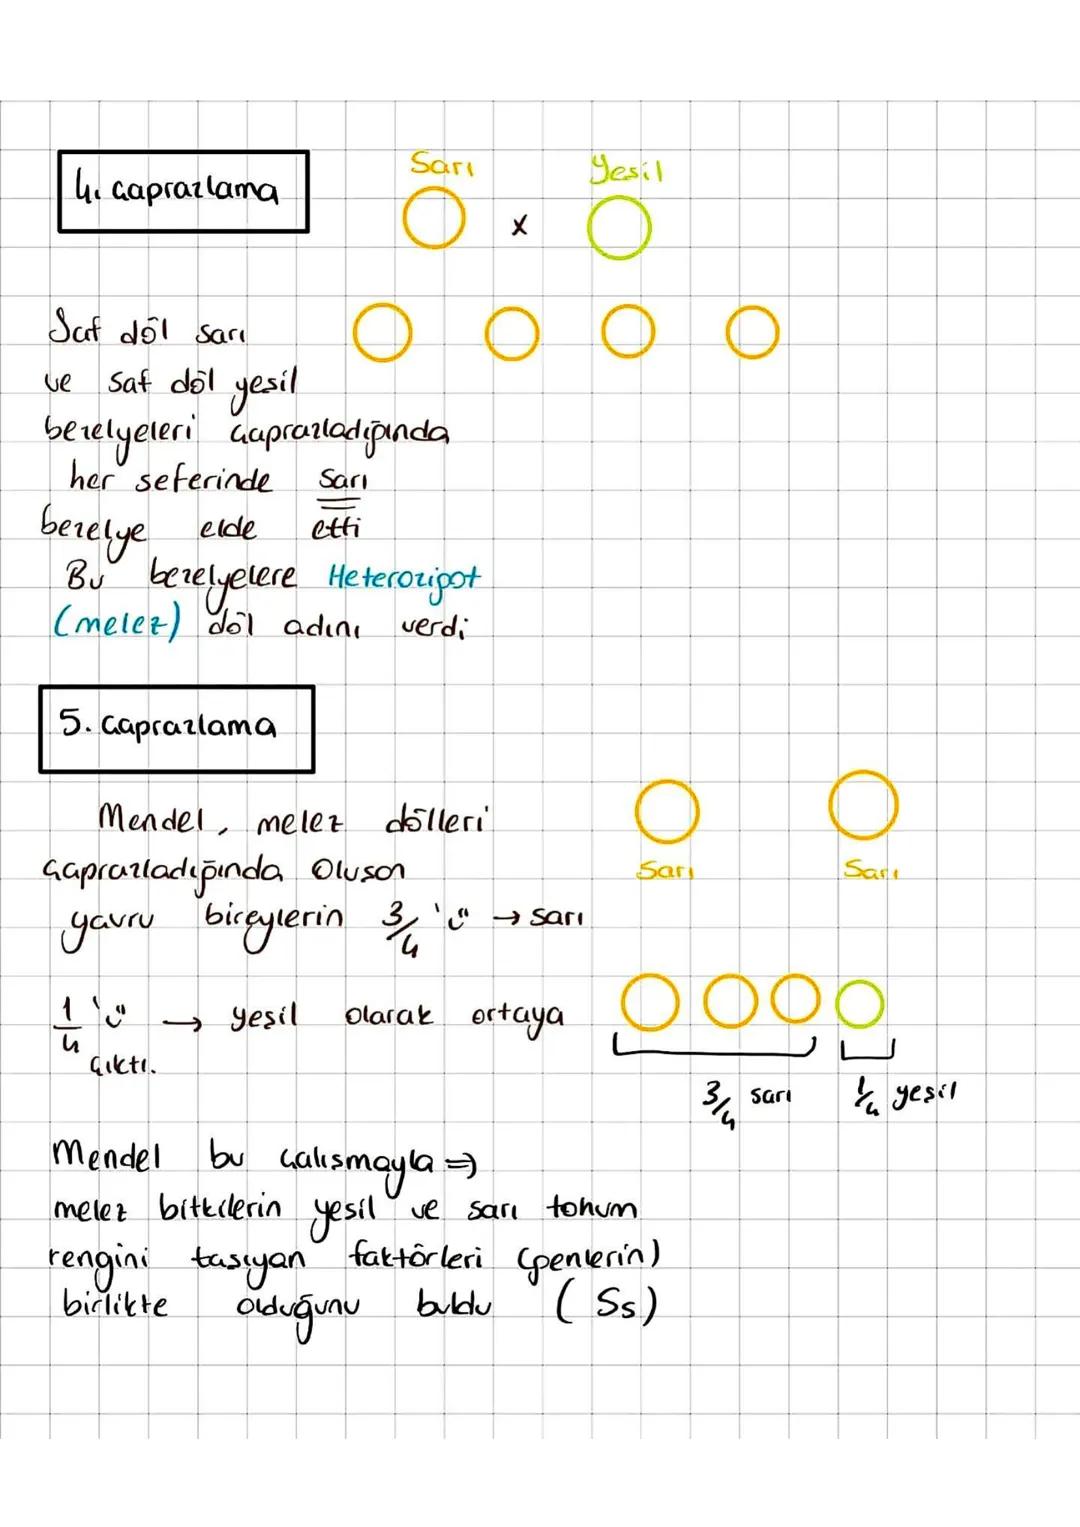 4. Çaprazlama
Sarı Yesil
x
Saf döl sarı
ve saf döl yesil
bezelyeleri çaprazladığında
her seferinde sarı
bezelye elde etti
Bu bezelyelere Heterozigot
(melez) döl adını verdi
5. Çaprazlama
Mendel, melez dölleri
Çaprazladığında Oluson
Sarı Sarı
yavru bireylerin 3/4 'ü → sarı
1/4 'ü → yeşil olarak ortaya
çıktı.
3/4 sarı 1/4 yeşil
Mendel bu çalısmayla ⇒
melez bitkilerin yesil ve sarı tohum
rengini tasıyan faktörleri (genlerin)
birlikte olduğunu buldu (Ss)